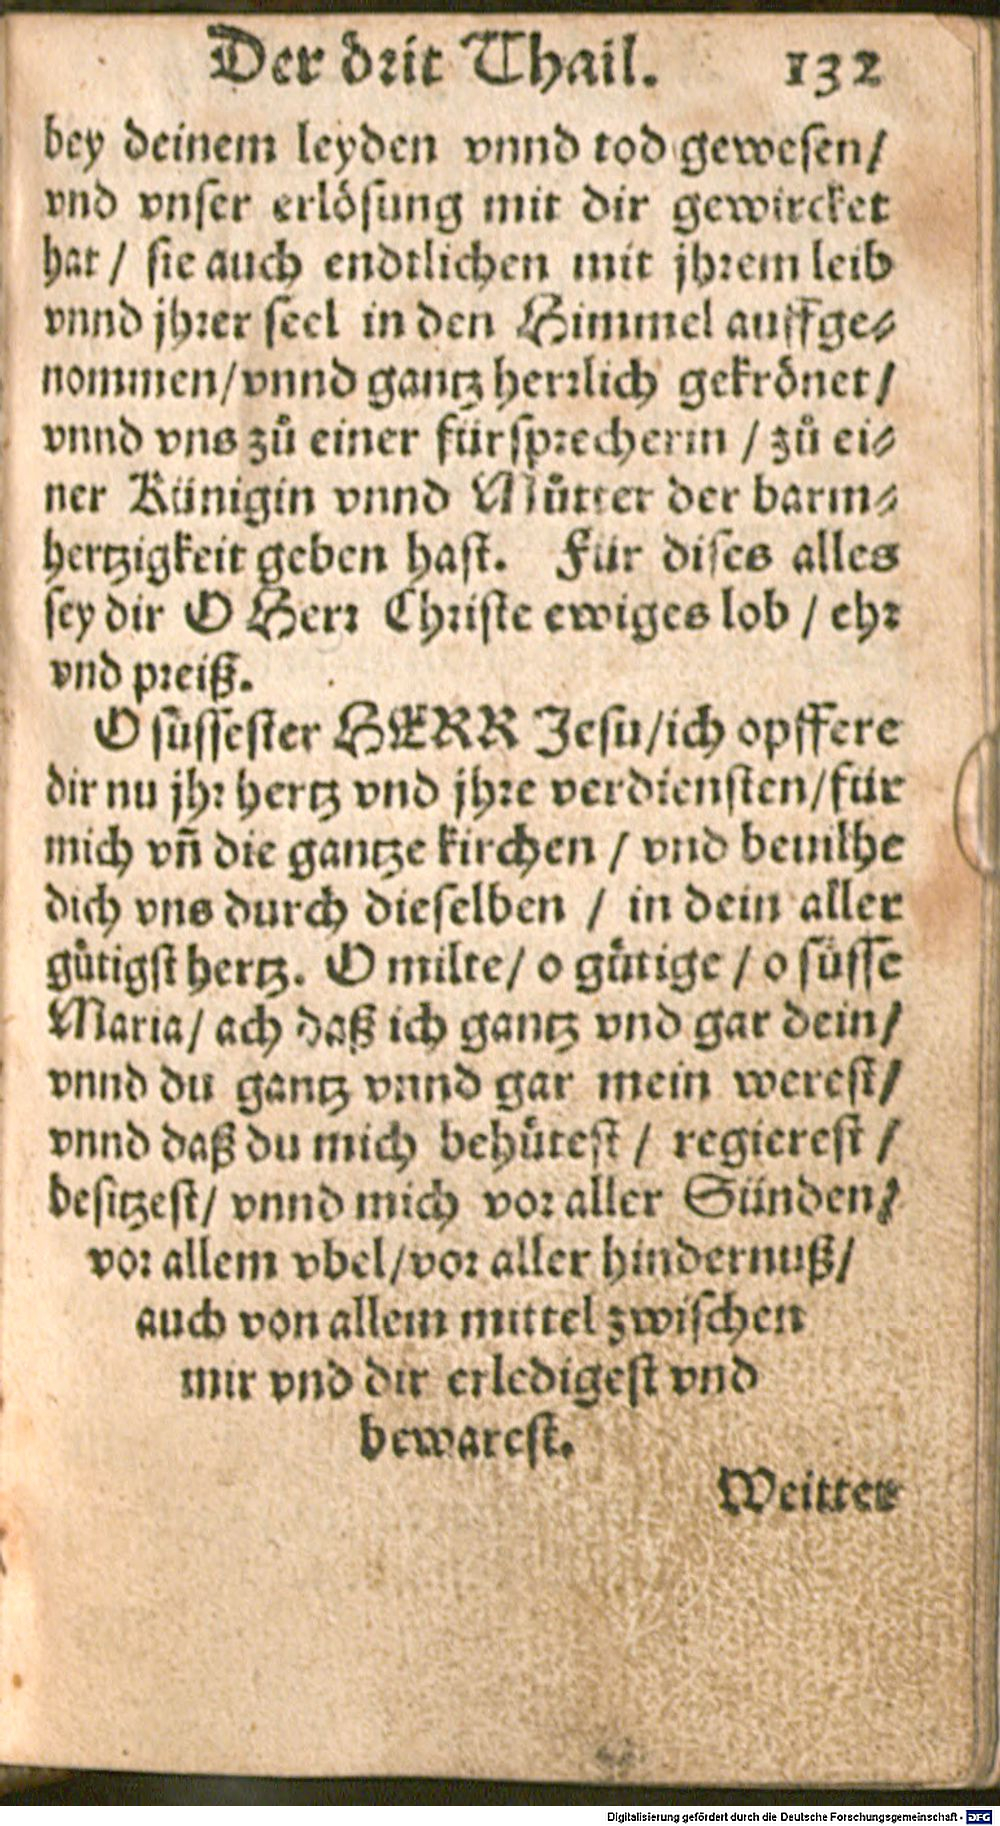 Der drit Thail. 132
bey deinem leyden vnnd tod gewesen/
vnd vnser erlösung mit dir gewircket
hat / sie auch endtlichen mit jhrem leib
vnnd jhrer seel in den Himmel auffge⸗
nommen/vnnd gantz herrlich gekrönet/
vnnd vns zů einer fürsprecherin / zů ei⸗
ner Künigin vnnd Můtter der barm⸗
hertzigkeit geben hast. Für dises alles
sey dir O Herr Christe ewiges lob / ehr
vnd preiß.
O süssester HERR Jesu/ich opffere
dir nu jhr hertz vnd jhre verdiensten/für
mich vñ die gantze kirchen / vnd beuilhe
dich vns durch dieselben / in dein aller
gůtigst hertz. O milte/ o gůtige / o süsse
Maria/ ach daß ich gantz vnd gar dein/
vnnd du gantz vnnd gar mein werest/
vnnd daß du mich behůtest / regierest /
besitzest/ vnnd mich vor aller Sünden/
vor allem vbel/vor aller hindernuß/
auch von allem mittel zwischen
mir vnd dir erledigest vnd
bewarest.
Weitter
Digitalisierung gefördert durch die Deutsche Forschungsgemeinschaft - DFG